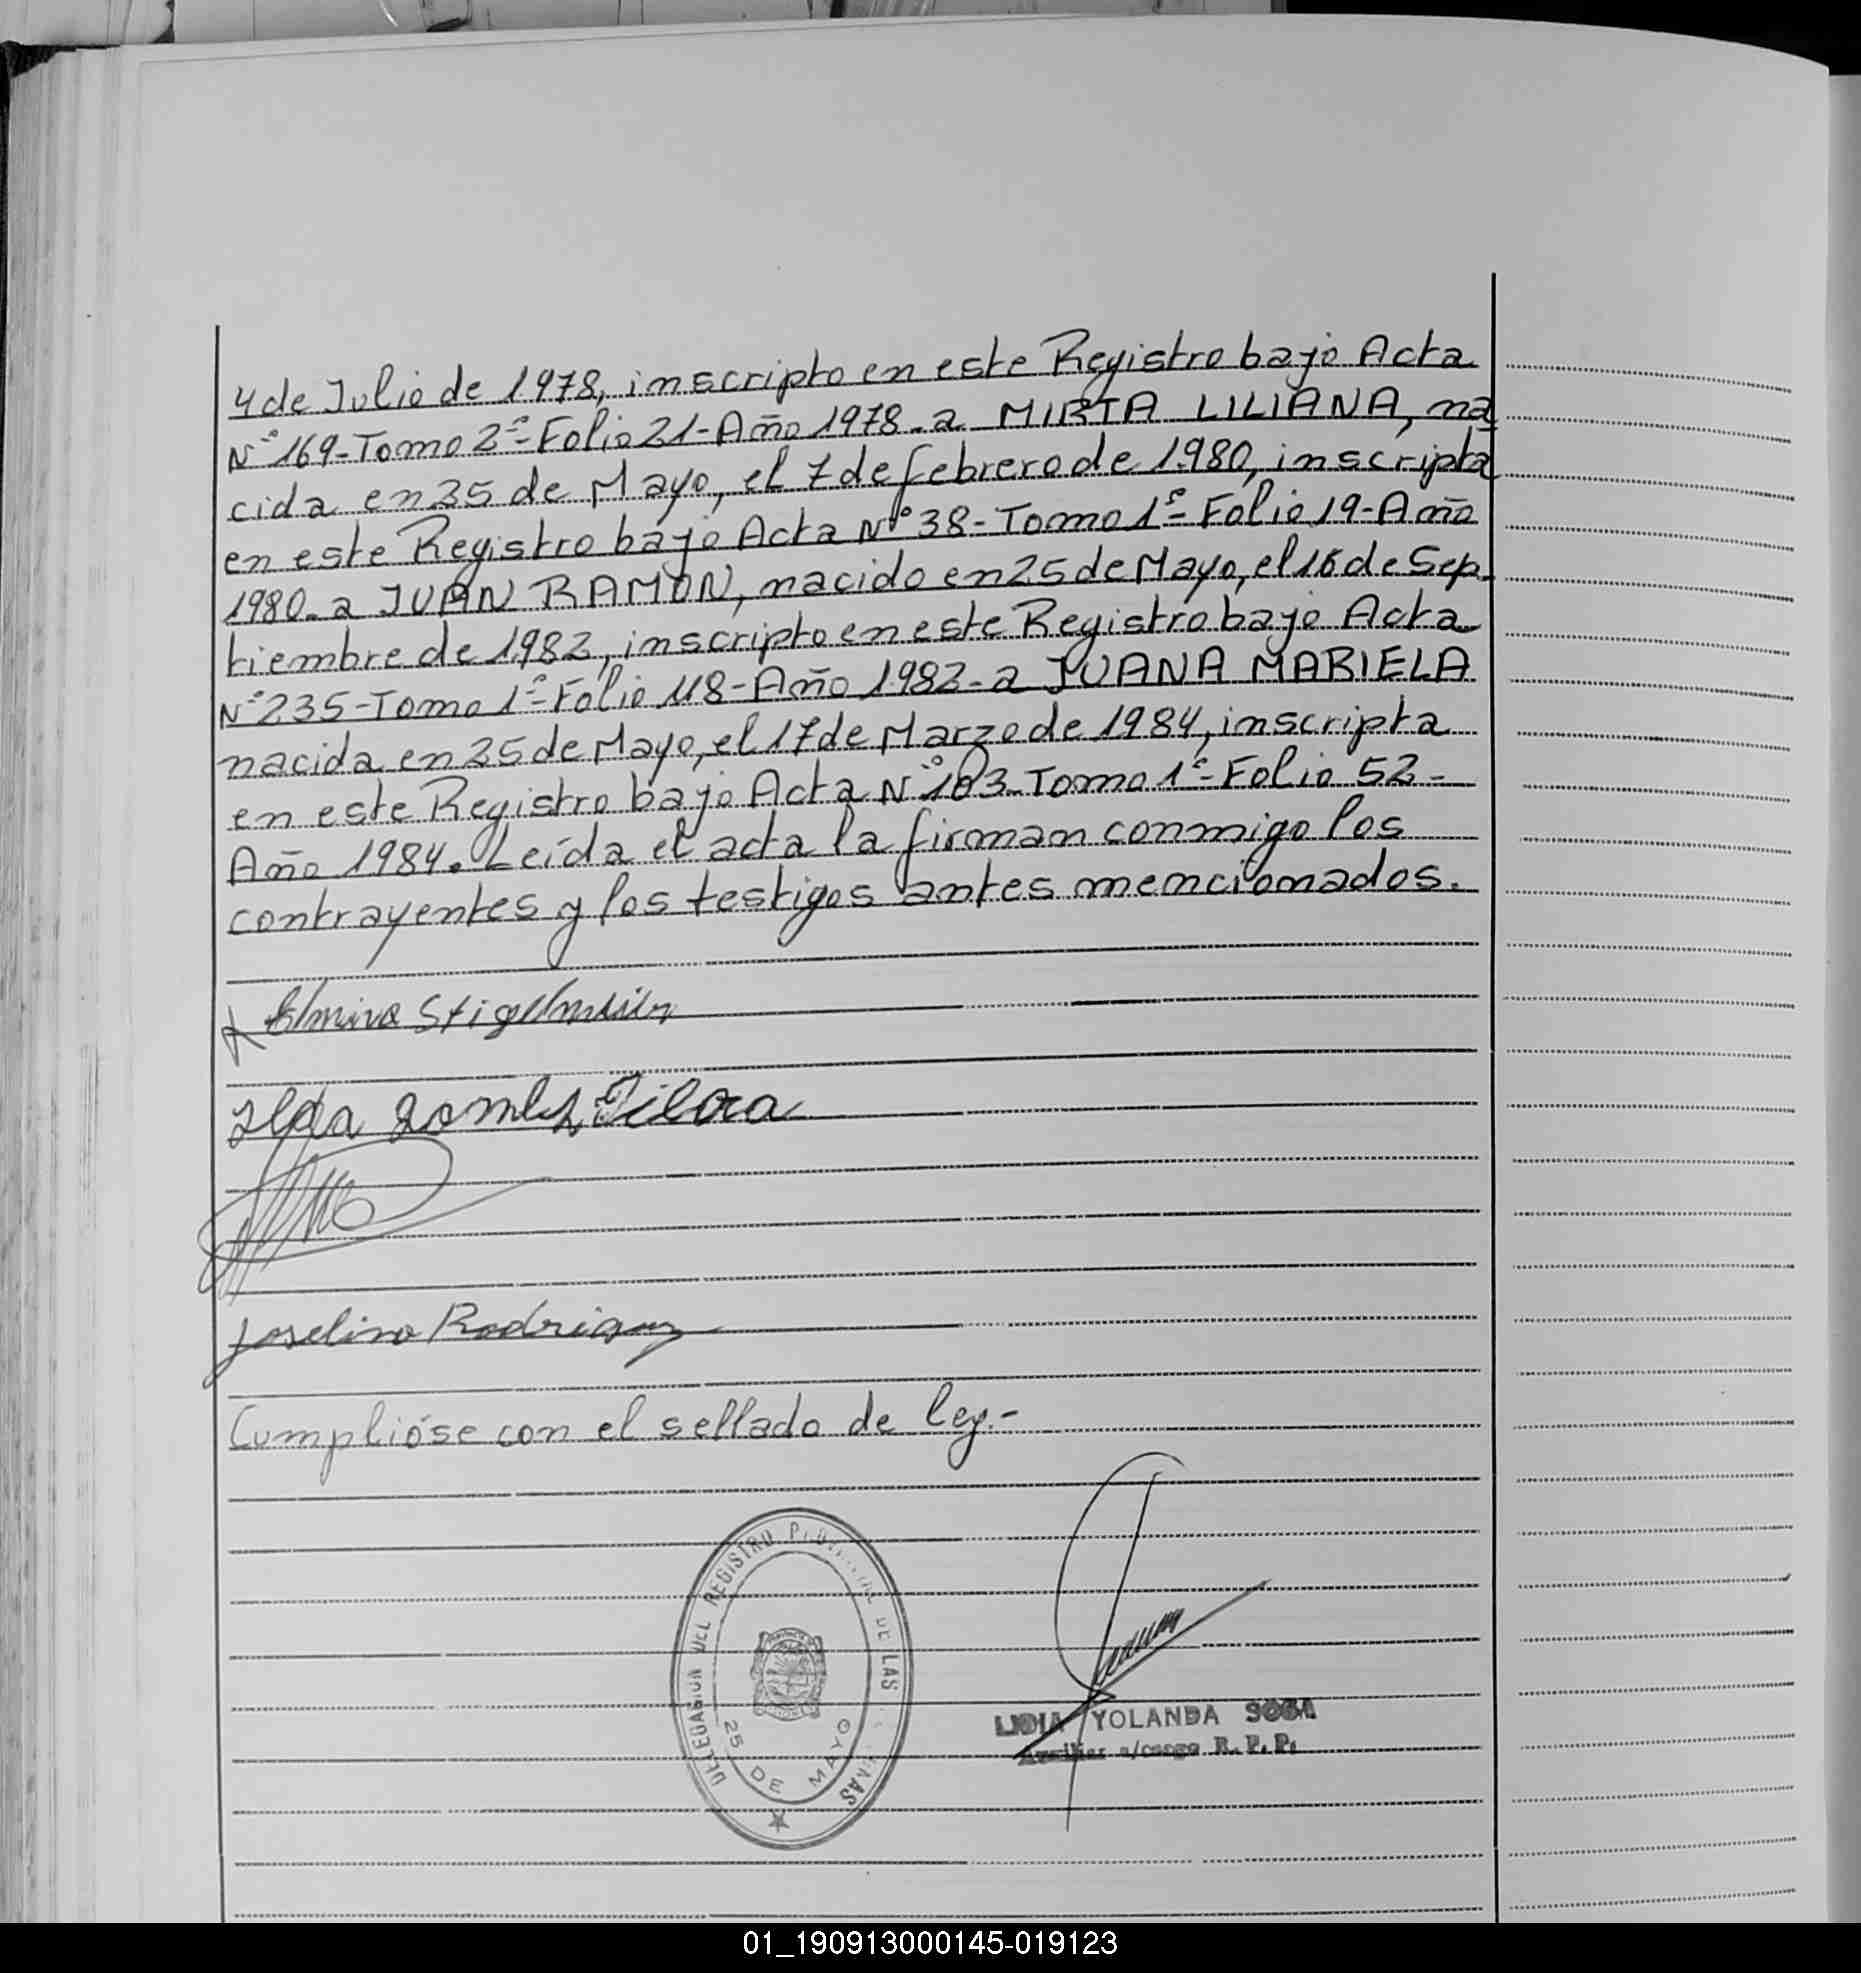 4 de Julio de 1978, inscripto en este Registro bajo Acta
Nº 169-Tomo 2º-Folio 21-Año 1978-a MIRTA LILIANA, na
cida en 25 de Mayo, el 7 de febrero de 1980, inscripta
en este Registro bajo Acta Nº 38-Tomo 1º-Folio 19-Año
1980-a JUAN RAMON, nacido en 25 de Mayo, el 16 de Sep-
tiembre de 1982, inscripto en este Registro bajo Acta
Nº 235-Tomo 1º-Folio 118-Año 1982-a JUANA MARIELA
nacida en 25 de Mayo, el 17 de Marzo de 1984, inscripta
en este Registro bajo Acta Nº 103-Tomo 1º-Folio 52-
Año 1984. Leída el acta la firman conmigo los
contrayentes y los testigos antes mencionados.
Elmira
Ilda Gomez
Joselino Rodriguez
Cumplióse con el sellado de ley.-
DELEGACION DEL REGISTRO PROVINCIAL DE LAS PERSONAS
25 DE MAYO
LIDIA YOLANDA SOSA
Auxiliar a/cargo R. P. P.
01_190913000145-019123